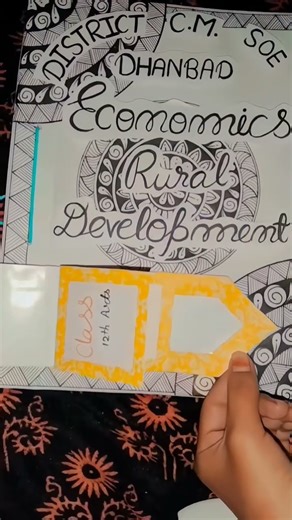 DISTRICT C.M. SOE
DHANBAD
Economics
Rural
Development
Class
12th Arts